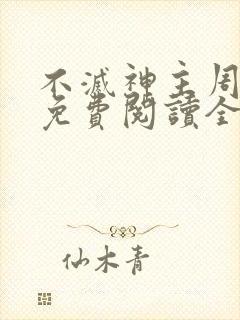 不滅神主周
免費閱讀全
仙木青